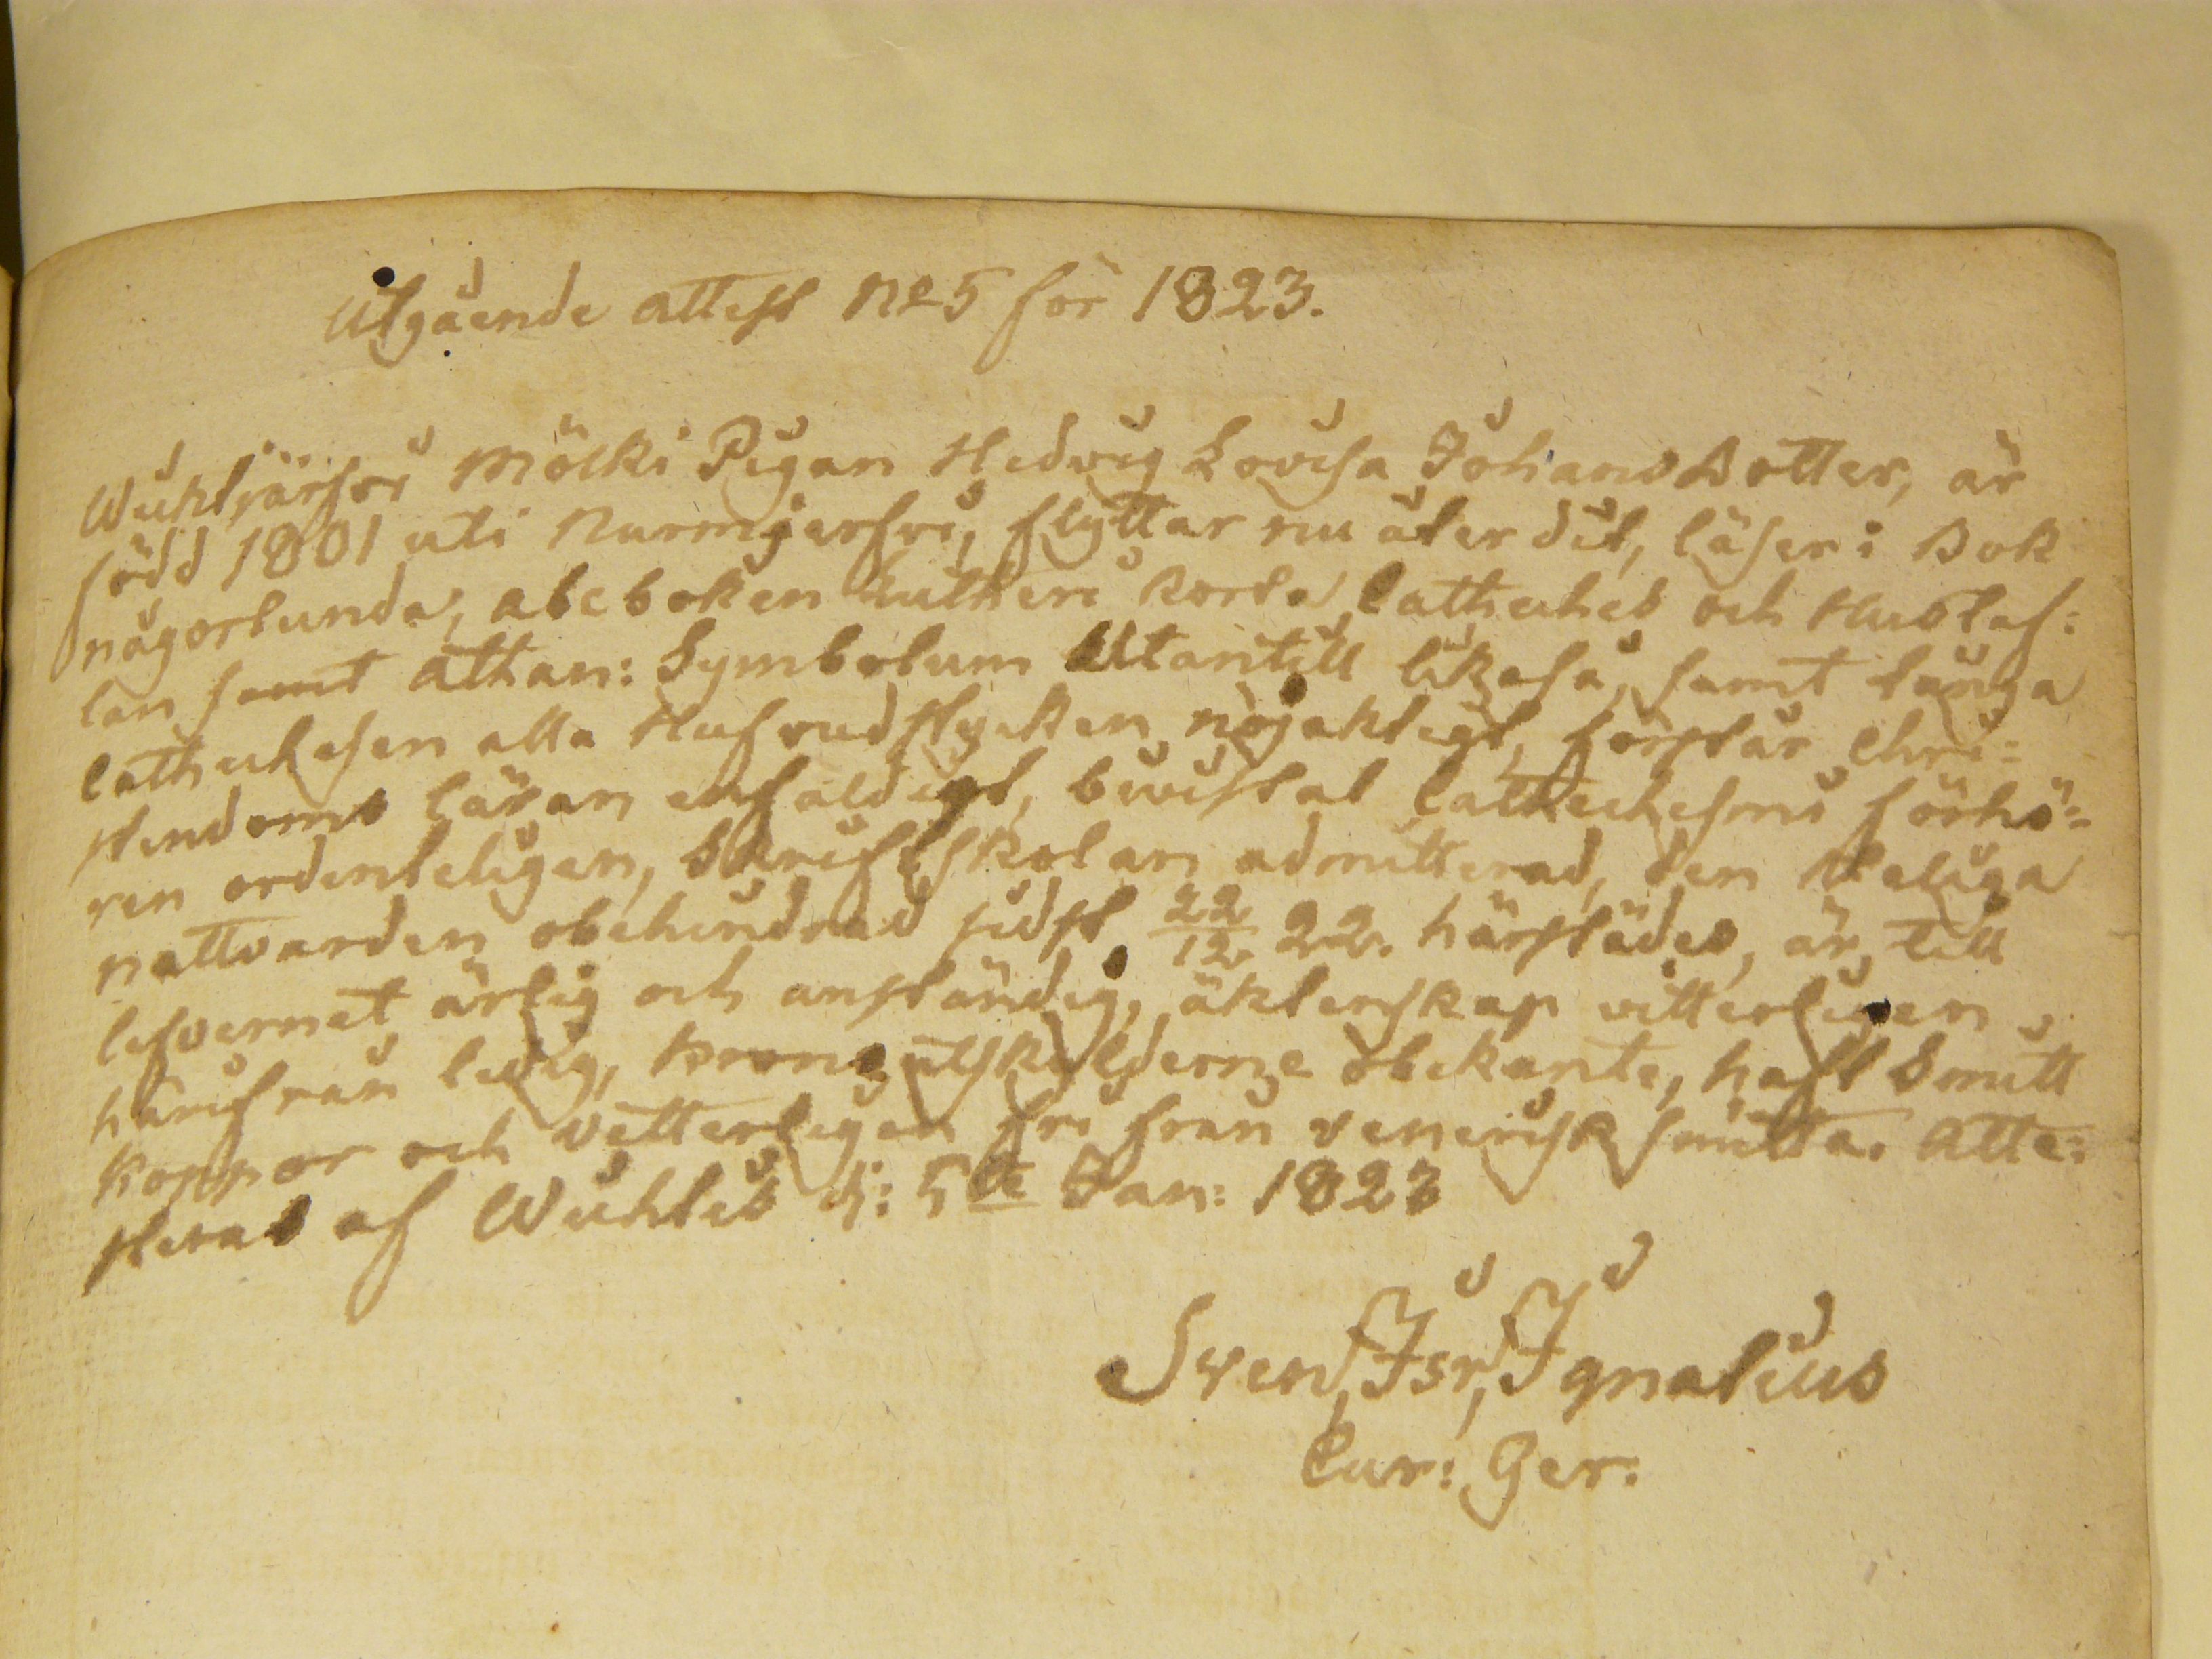 Utgående attest No 5 för 1823.
Wichtjärfvi Mölki Pigan Hedvig Lovisa Johans Dotter, är
född 1801 uti Nurmjerfvi, flyttar nu åter dit, läser i Bok
någorlunda, abc boken Lutheri korta Catheches och Hustaf:
lan samt Athan: Symbolum Utantill likaså, samt långa
Cathechesen alla Hufvudstycken nöjaktigt, förstår Chri:
stendoms läran enfaldigt, bevistat Cathechesmi förhö:
ren ordenteligen, Skriftskolan admitterad, den Heliga
nattvarden obehindrad sidst 22/12 22. härstädes, är till
lefvernet ärlig och anständig, äktenskap vitterligen
härifrån ledig, kronoutskylderne obekante, haft Smitt
koppor och vetterligen fri från venerisk smitta. Atte:
steras af Wichtis d: 5te Jan: 1823
Sven Isr, Ignatius
Cur: Ger: